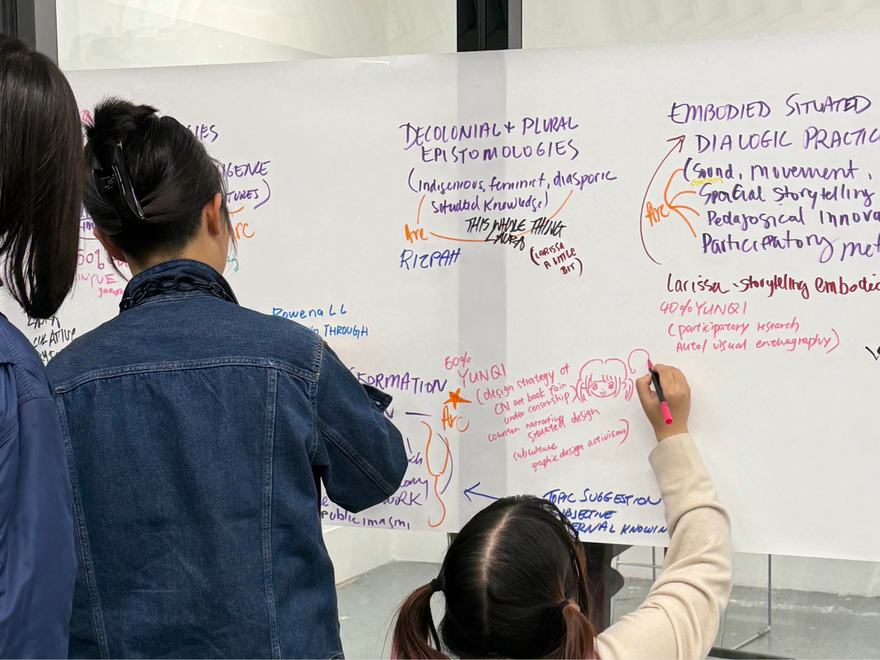 IES
IGENCE
TURES)
rc
50%
Rowena LL
THROUGH
DECOLONIAL + PLURAL
EPISTOMOLOGIES
(indigenous, feminist, diasporic
situated knowledge)
Arc
THIS WHOLE THING
LAURA
RIZPAH
(LARISSA
A LITTLE
BIT)
FORMATION
60%
YUNQI
Arc
(design strategy of
CN art book fair
under censorship)
counter narrative
situated design
subculture
graphic design activism)
WORK
public imagi
TOPIC SUGGESTION
EMBODIED SITUATED
DIALOGIC PRACTIC
(Sound, movement,
Spatial storytelling
Arc
Pedagogical innova
Participatory met
Larissa - storytelling embodie
40% YUNQI
(participatory research
Auto/visual enthography)